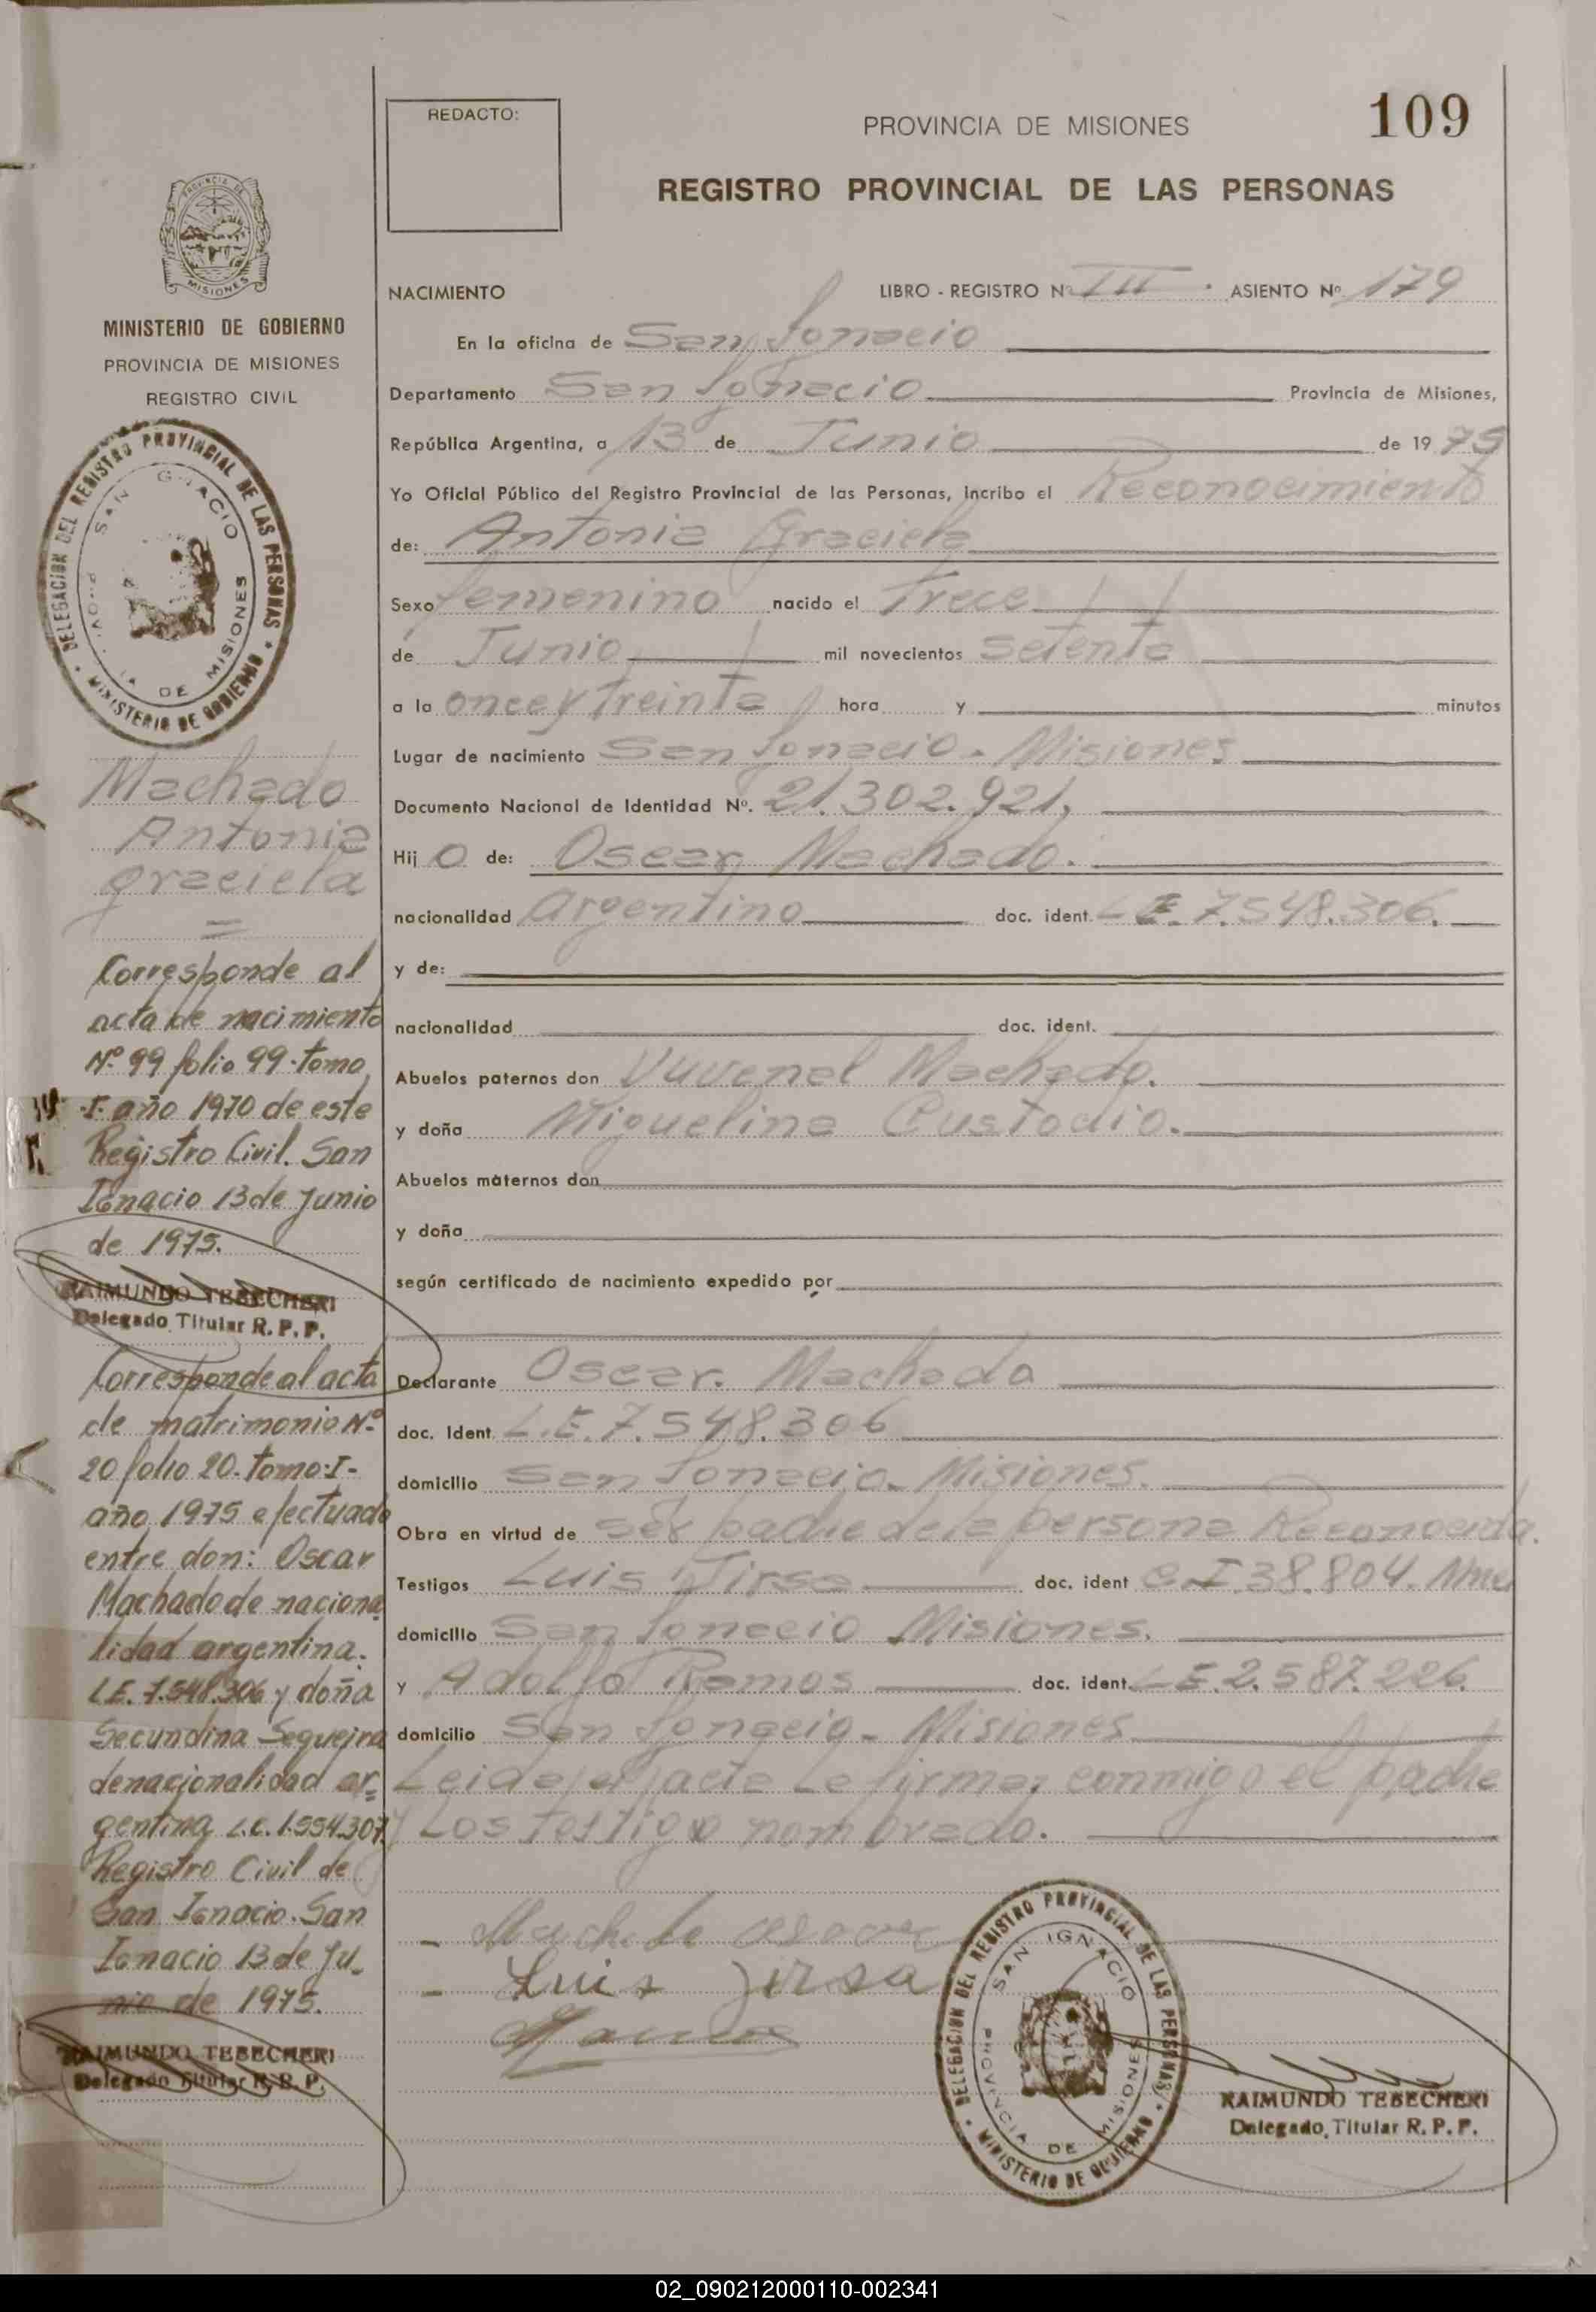 REDACTO:
PROVINCIA DE MISIONES
109
REGISTRO PROVINCIAL DE LAS PERSONAS
NACIMIENTO LIBRO - REGISTRO Nº III. ASIENTO Nº 179
En la oficina de San Ignacio
Departamento San Ignacio Provincia de Misiones,
República Argentina, a 13 de Junio de 1975
Yo Oficial Público del Registro Provincial de las Personas, incribo el Reconocimiento
de: Antonia Graciela
Sexo femenino nacido el Trece
de Junio mil novecientos setenta
a la once y treinta hora y minutos
Lugar de nacimiento San Ignacio - Misiones
Documento Nacional de Identidad Nº. 21.302.921,
Hij o de: Oscar Machado.
nacionalidad argentino doc. ident. L E. 7.548.306.
y de:
nacionalidad doc. ident.
Abuelos paternos don Yuvenal Machado.
y doña Miguelina Custodio.
Abuelos maternos don
y doña
según certificado de nacimiento expedido por
Declarante Oscar. Machado
doc. Ident. L.E. 7.548.306
domicilio San Ignacio - Misiones.
Obra en virtud de ser padre de la persona Reconocida.
Testigos Luis Jirsa doc. ident C.I 38.804.
domicilio San Ignacio Misiones.
y Adolfo Ramos doc. ident. L E. 2.587.226.
domicilio San Ignacio - Misiones
Leida el acta la firman conmigo el padre
y Los testigo nombrado.
- Machado Oscar
- Luis Jirsa
DELEGACION DEL REGISTRO PROVINCIAL DE LAS PERSONAS
SAN IGNACIO
PROVINCIA DE MISIONES
MINISTERIO DE GOBIERNO
RAIMUNDO TEBECHERI
Delegado Titular R. P. P.
PROVINCIA DE
MISIONES
MINISTERIO DE GOBIERNO
PROVINCIA DE MISIONES
REGISTRO CIVIL
DELEGACION DEL REGISTRO PROVINCIAL DE LAS PERSONAS
MINISTERIO DE GOBIERNO
Machado
Antonia
graciela
Corresponde al
acta de nacimiento
Nº 99 folio 99-tomo
-I- año 1970 de este
Registro Civil. San
Ignacio 13 de Junio
de 1975.
RAIMUNDO TEBECHERI
Delegado Titular R. P. P.
Corresponde al acta
de matrimonio Nº
20 folio 20-tomo-I-
año 1975 efectuado
entre don: Oscar
Machado de naciona
lidad argentina.
L.E. 7.548.306 y doña
Secundina Sequeira
de nacionalidad ar=
gentina L.C. 1.554.307
Registro Civil de
San Ignacio. San
Ignacio 13 de Ju-
nio de 1975.
RAIMUNDO TEBECHERI
Delegado Titular R. P. P.
02_090212000110-002341